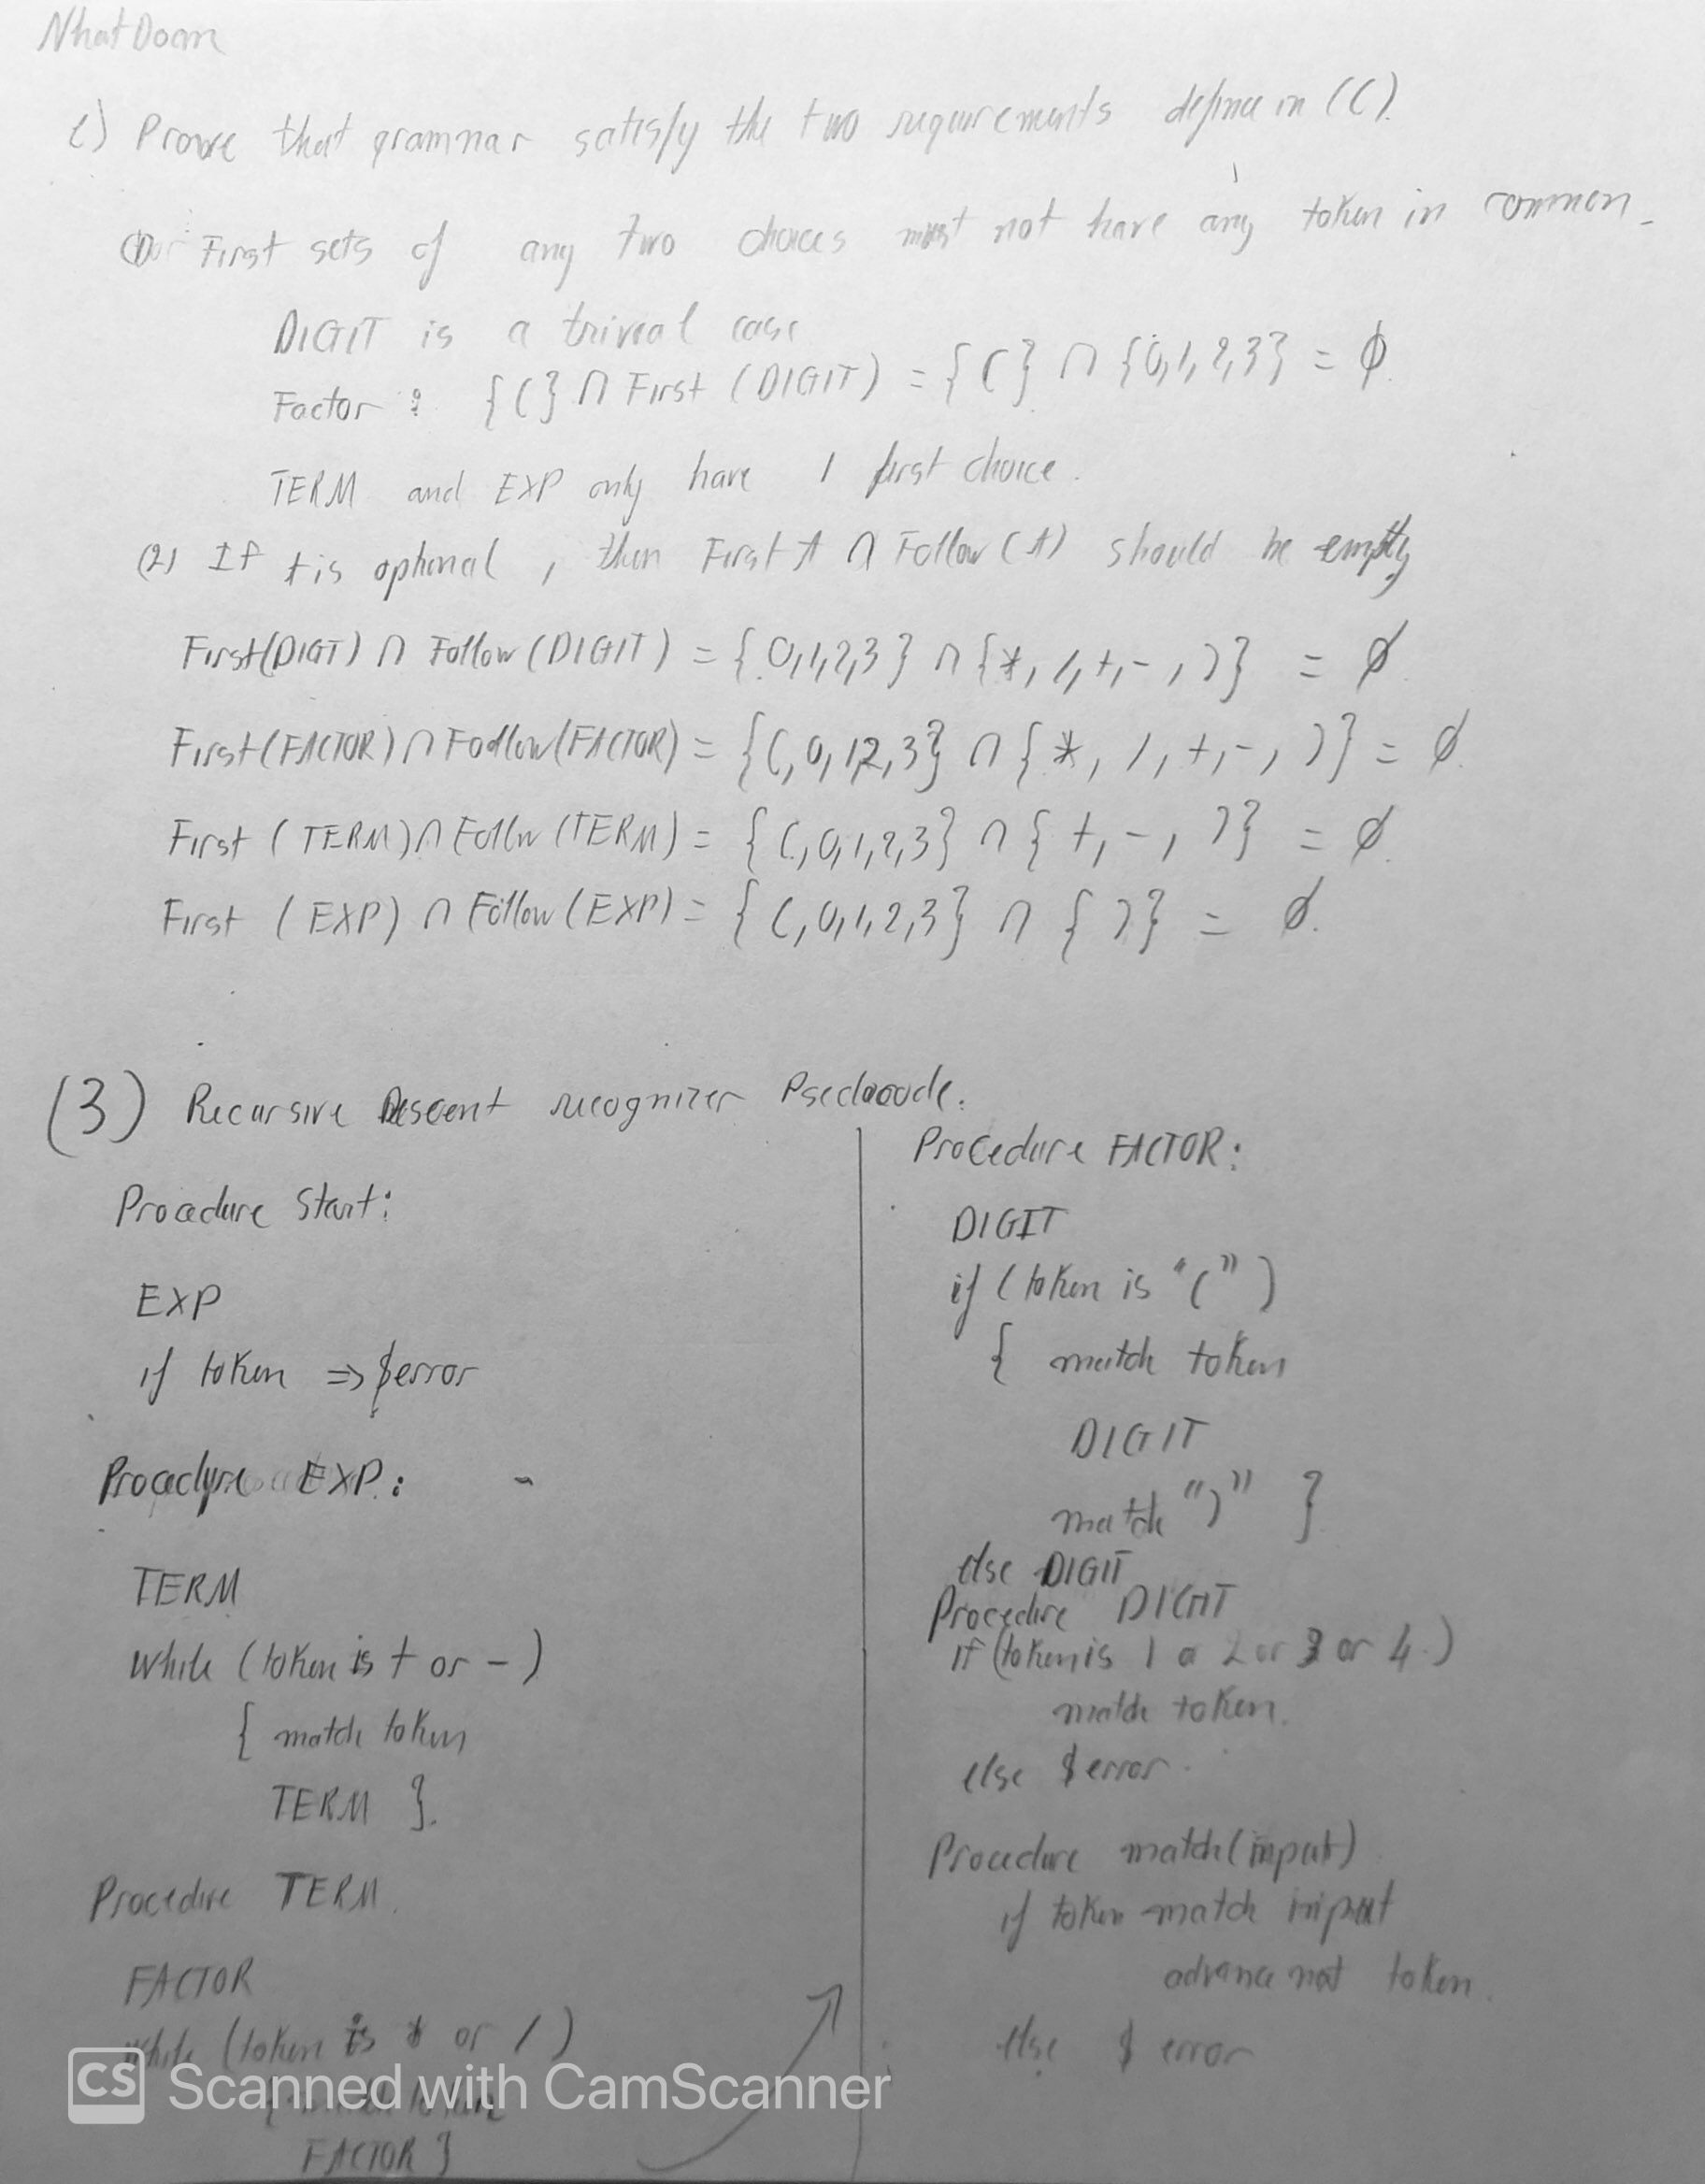 Nhat Doan
c) Prove that grammar satisfy the two requirements define in (C).
(1) First sets of any two choices must not have any token in common.
DIGIT is a trivial case
Factor : {(} ∩ First (DIGIT) = {(} ∩ {0,1,2,3} = ∅.
TERM and EXP only have 1 first choice.
(2) If A is optional, then First A ∩ Follow (A) should be empty
First(DIGT) ∩ Follow (DIGIT) = {0,1,2,3} ∩ {*, /, +, -, )} = ∅.
First(FACTOR) ∩ Follow(FACTOR) = {(, 0, 1,2,3} ∩ {*, /, +, -, )} = ∅.
First (TERM) ∩ Follw (TERM) = {(, 0,1,2,3} ∩ {+, -, )} = ∅.
First (EXP) ∩ Follow (EXP) = {(, 0,1,2,3} ∩ {)} = ∅.
(3) Recursive Descent recognizer
Procedure Start:
EXP
if token => $error
Procedure EXP:
TERM
While (token is + or -)
{ match token
TERM }.
Procedure TERM.
FACTOR
while (token is * or /)
{ match token
FACTOR }
Procedure FACTOR:
DIGIT
if (token is "(")
{ match token
DIGIT
match ")" }
else DIGIT
Procedure DIGIT
if (token is 1 or 2 or 3 or 4.)
match token.
else $ error.
Procedure match(input)
if token match input
advance token.
else $ error
CS Scanned with CamScanner